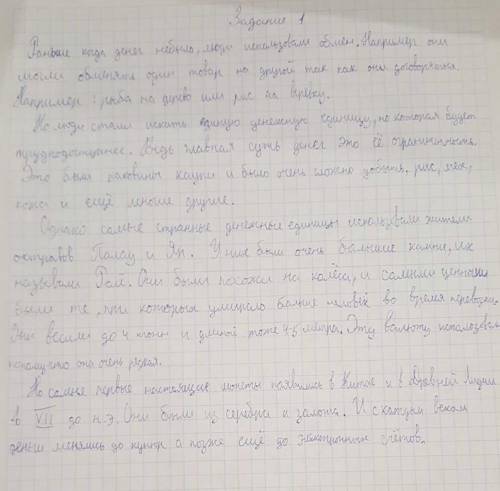 Задание 1
Раньше когда денег небыло, люди использовали обмен. Например они
могли обменять один товар на другой так как они договорятся.
Например: рыба на дерево или рис на верёвку.
Но люди стали искать единую денежную единицу, но которая будет
труднодоступнее. Ведь главная суть денег это её ограниченность.
Это были раковины каури и было очень сложно добыть. рис, мех,
кожа и ещё многие другие.
Однако самые странные денежные единицы использовали жители
островов Палау и Яп. У них были очень большие камни, их
называли Раи. Они были похожи на колёса, и самыми ценными
были те, при которых умирало больше человек во время перевозки.
Они весили до 4 тонн и длиной тоже 4-5 метра. Эту валюту использовали
потомучто она очень редкая.
Но самые первые настоящие монеты появились в Китае и в Древней Лидии
в VII до н.э. Они были из серебра и золота. И с каждым веком
деньги менялись до купюр а позже ещё до электронных счётов.